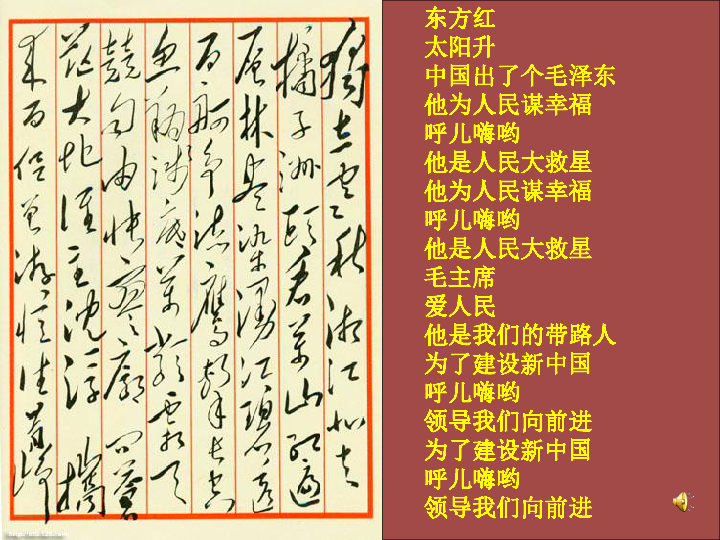 獨立寒秋湘江北去
橘子洲頭看萬山紅遍
層林盡染漫江碧透
百舸爭流鷹擊長空
魚翔淺底萬類霜天
競自由悵寥廓問蒼
茫大地誰主沈浮攜
來百侶曾游憶往昔崢
东方红
太阳升
中国出了个毛泽东
他为人民谋幸福
呼儿嗨哟
他是人民大救星
他为人民谋幸福
呼儿嗨哟
他是人民大救星
毛主席
爱人民
他是我们的带路人
为了建设新中国
呼儿嗨哟
领导我们向前进
为了建设新中国
呼儿嗨哟
领导我们向前进